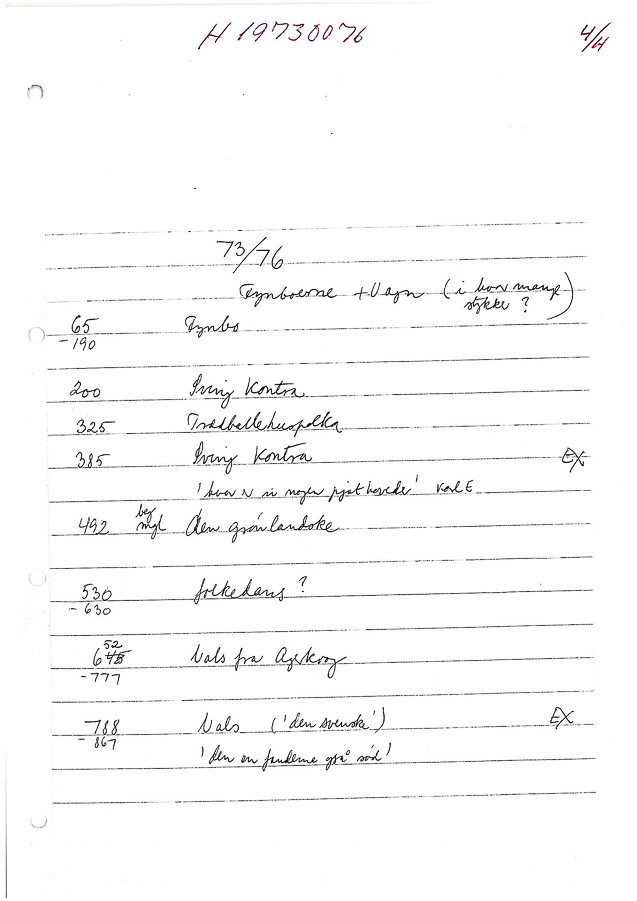 H 19730076 4/4
73/76
Fynboerne + Vagn (i hvor mange
stykker ?)
65 Fynbo
-190
200 Sving Kontra
325 Trædballehuspolka
385 Sving Kontra EX
'hvor er i nogen pjathoveder' Karl E
492 beg mgl den grønlandske
530 folkedans ?
-630
652 Vals fra
-777
788 Vals ('den svenske') EX
-867
'den en fandeme også sød'